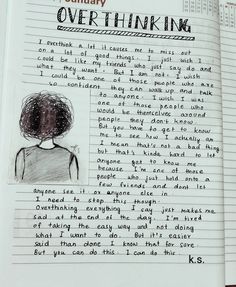 OVERTHINKING
I overthink a lot it causes me to miss out
on a lot of good things. I just wish I
could be like my friends who just say and do
what they want. But I am not. I wish
I could be one of those people who are
so confident they can walk up and talk
to anyone. I wish I was
one of those people who
would be themselves around
people they don't know.
But you have to get to know
me to see how I actually am
I mean that's not a bad thing
but that's kinda hard to let
anyone get to know me
because I'm one of those
people who just hold onto a
few friends and dont let
anyone see it or anyone else in.
I need to stop this though.
Overthinking everything I say just makes me
sad at the end of the day. I'm tired
of taking the easy way and not doing
what I want to do. But it's easier
said than done I know that for sure.
But you can do this. I can do this.
K.S.